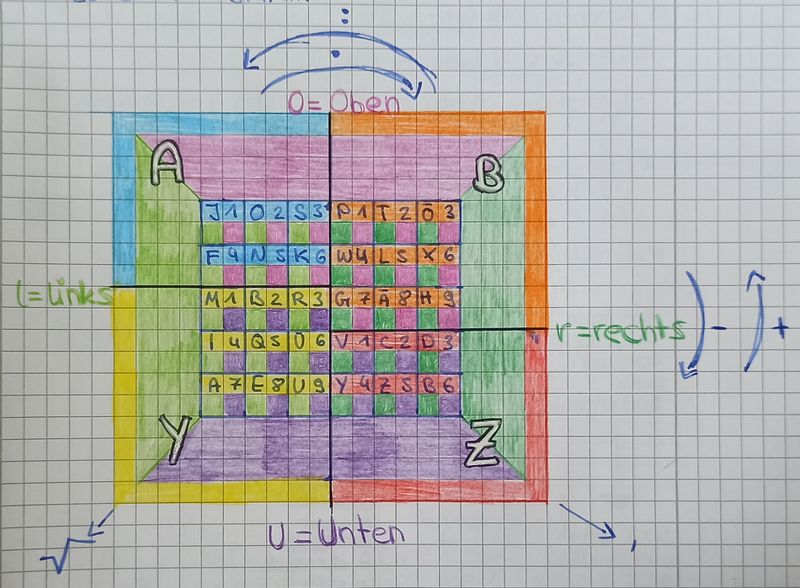 :
·
O=Oben
A
B
J 1 O 2 S 3 P 1 T 2 Ö 3
F 4 N 5 K 6 W 4 L 5 X 6
l=links
M 1 B 2 R 3 G 7 Ä 8 H 9
r=rechts - +
I 4 Q 5 Ü 6 V 1 C 2 D 3
A 7 E 8 U 9 Y 4 Z 5 6
Y
Z
U=Unten
√
,